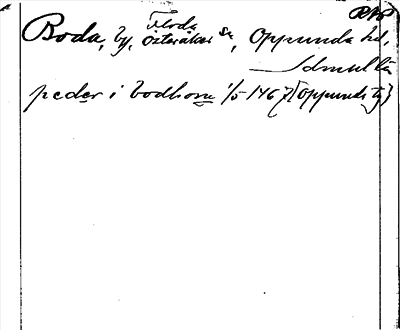 RAP
Floda
Boda, by, Österåker sn, Oppunda hd,
Södmanl. län
peder i bodhom 1/5 1467 (Oppunda tg)